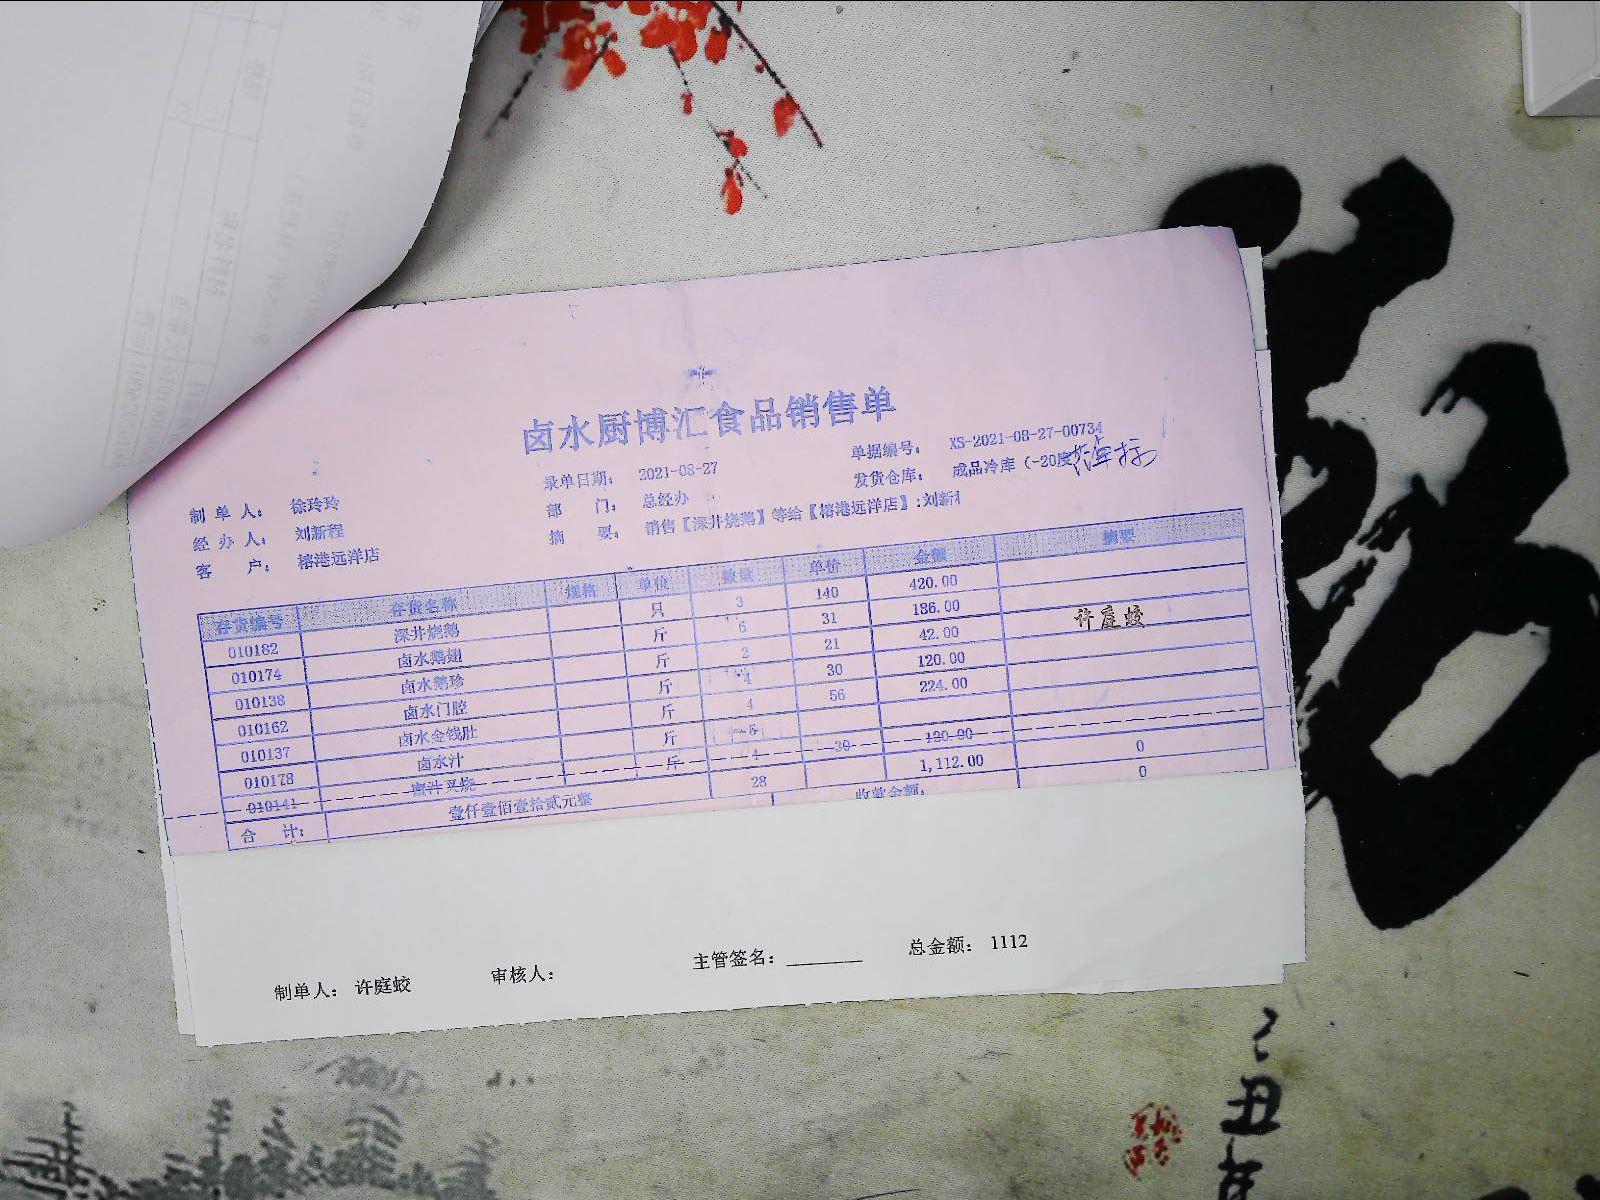 卤水厨博汇食品销售单
单据编号： XS-2021-08-27-00734
录单日期： 2021-08-27
发货仓库： 成品冷库（-20度
制单人： 徐玲玲
部 门： 总经办
经办人： 刘新程
摘 要： 销售【深井烧鹅】等给【榕港远洋店】:刘新
客 户： 榕港远洋店
存货编号 存货名称 规格 单位 数量 单价 金额 摘要
010182 深井烧鹅 只 3 140 420.00
010174 卤水鹅翅 斤 6 31 186.00
010138 卤水鹅珍 斤 2 21 42.00
010162 卤水门腔 斤 4 30 120.00
010137 卤水金钱肚 斤 4 56 224.00
010178 卤水汁 斤 5
010141 蜜汁叉烧 斤 4 30 120.00 0
合 计： 壹仟壹佰壹拾贰元整 28 1,112.00 0
收款金额：
许庭蛟
制单人： 许庭蛟 审核人： 主管签名：________ 总金额： 1112
丑